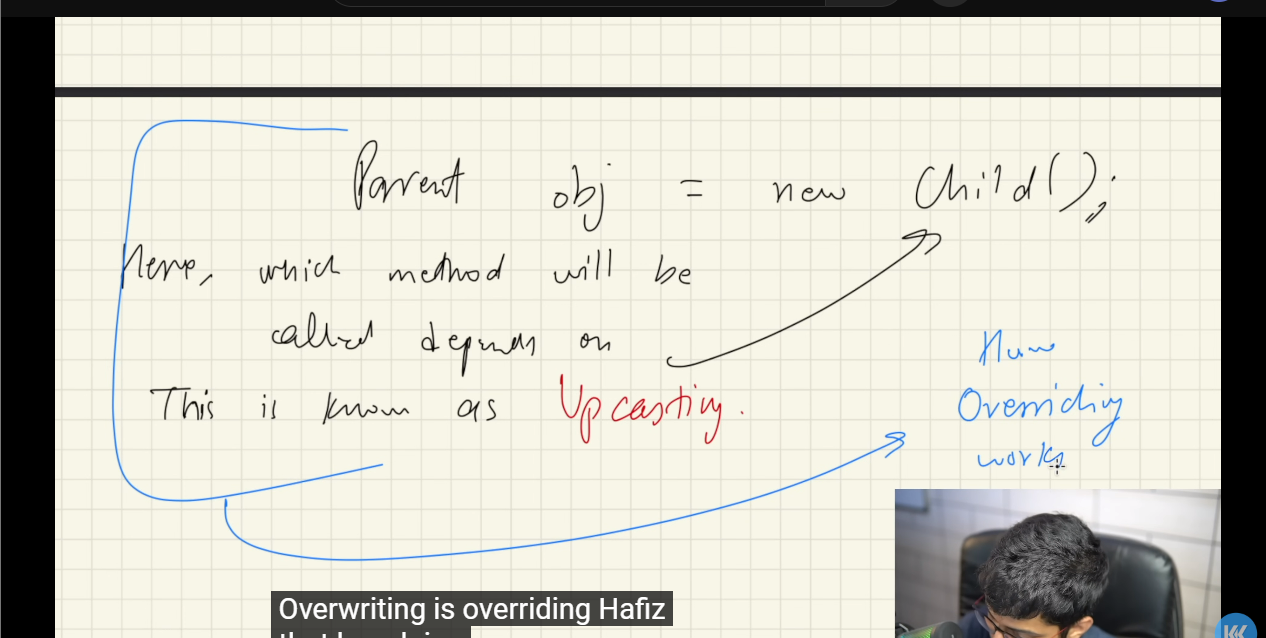 Parent obj = new Child();
Here, which method will be
called depends on
This is known as Upcasting.
How
Overriding
works
Overwriting is overriding Hafiz